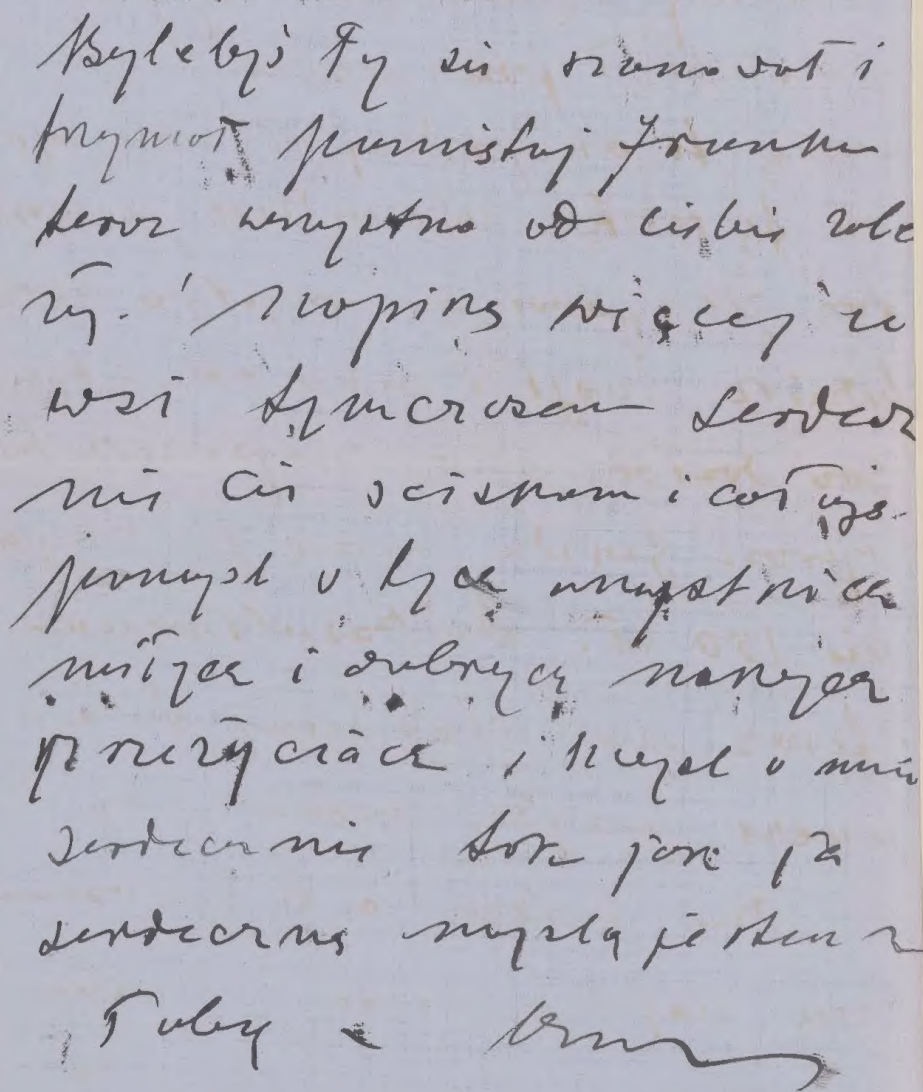 Bylebyś Ty się szanował i
trzymał pamiętaj Franku
teraz wszystko od ciebie zale
ży. ! Napiszę więcej ze
wsi tymczasem serdecz
nie Cię ściskam i całuję
pomyśl o tych wszystkich
miłych i dobrych naszych
przeżyciach i myśl o mnie
serdecznie tak jak ja
serdeczną myślą jestem z
Tobą